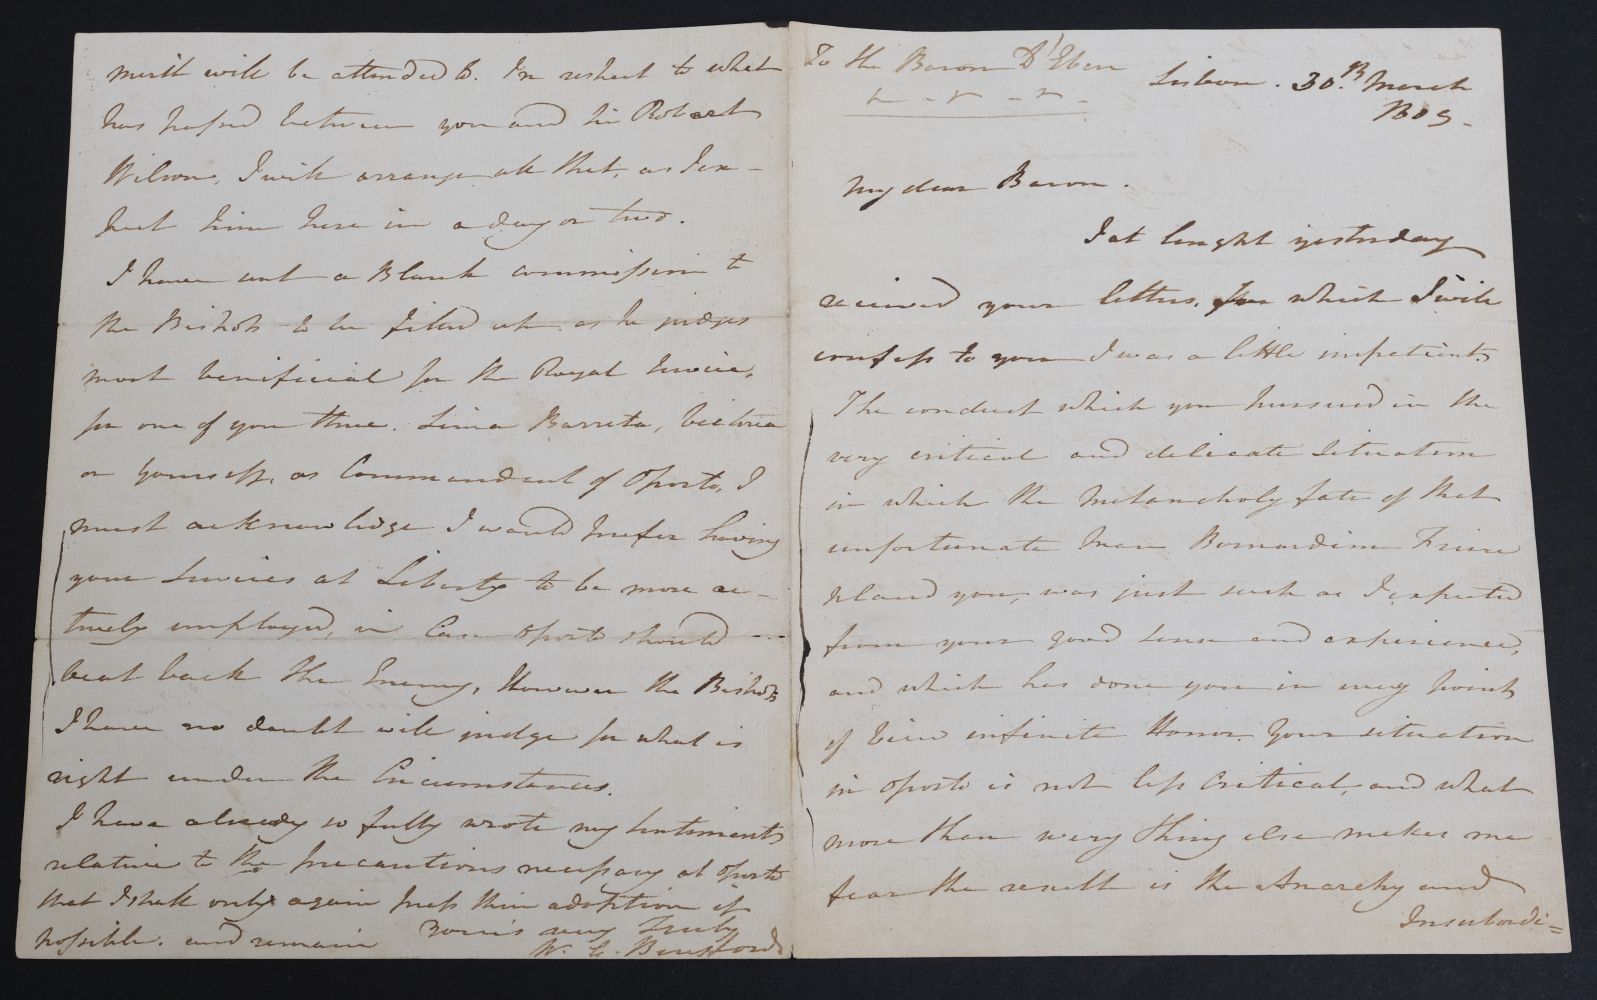 To the Baron D'Eben
Lisbon. 30th March
1809.
My dear Baron.
I at lenght yesterday
received your letters, for which I will
confess to you I was a little impatient.
The conduct which you pursued in the
very critical and delicate Situation
in which the Melancholy fate of that
unfortunate Man Bernardim Friere
placed you, was just such as I expected
from your good sense and experience,
and which has done you in every point
of View infinite Honor. Your situation
in Oporto is not less Critical, and what
more than every thing else makes me
fear the result is the Anarchy and
Insubordi=
merit will be attended to. In respect to what
has passed between you and Sir Robert
Wilson, I will arrange all that, as I ex-
pect him here in a day or two.
I have sent a Blank commission to
the Bishop to be filled up as he judges
most benificial for the Royal Service,
for one of you three. Lima Barreto, Victoria
or yourself, as Commandant of Oporto, I
must acknowledge I would prefer having
your Services at Liberty to be more ac-
tively employed, in Case Oporto should
beat back the Enemy, However the Bishop
I have no doubt will judge for what is
right under the Circumstances.
I have already so fully wrote my Sentiments
relative to the precautions necessary at Oporto
that I shall only again press their adoption if
possible. and remain Yours very Truly
W. C. Beresford